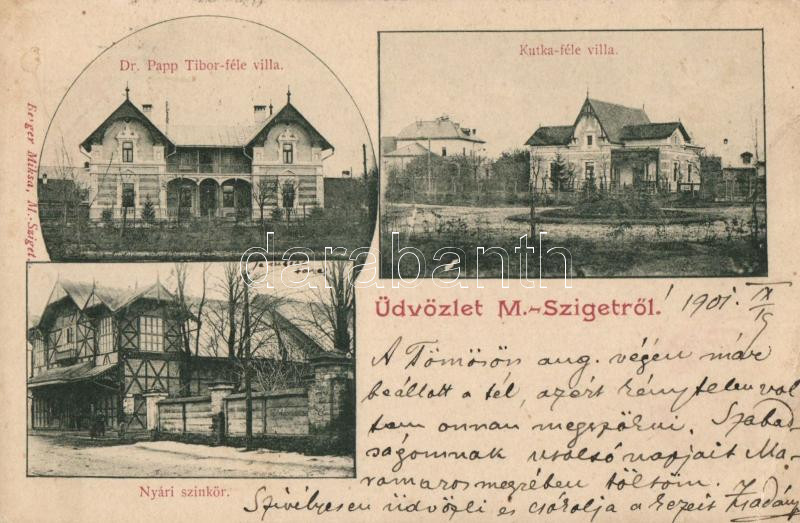 Dr. Papp Tibor-féle villa.
Kutka-féle villa.
Berger Miksa, M.-Sziget.
darabanth
Üdvözlet M.-Szigetről!
1901. IX/15
A Tömösön aug. végén már
beállott a tél, azért kénytelen vol
tam onnan megszökni. Szabad-
ságomnak utolsó napjait Ma-
ramarosmegyében töltöm.
Szívélyesen üdvözli és csókolja a kezeit
Nyári szinkör.